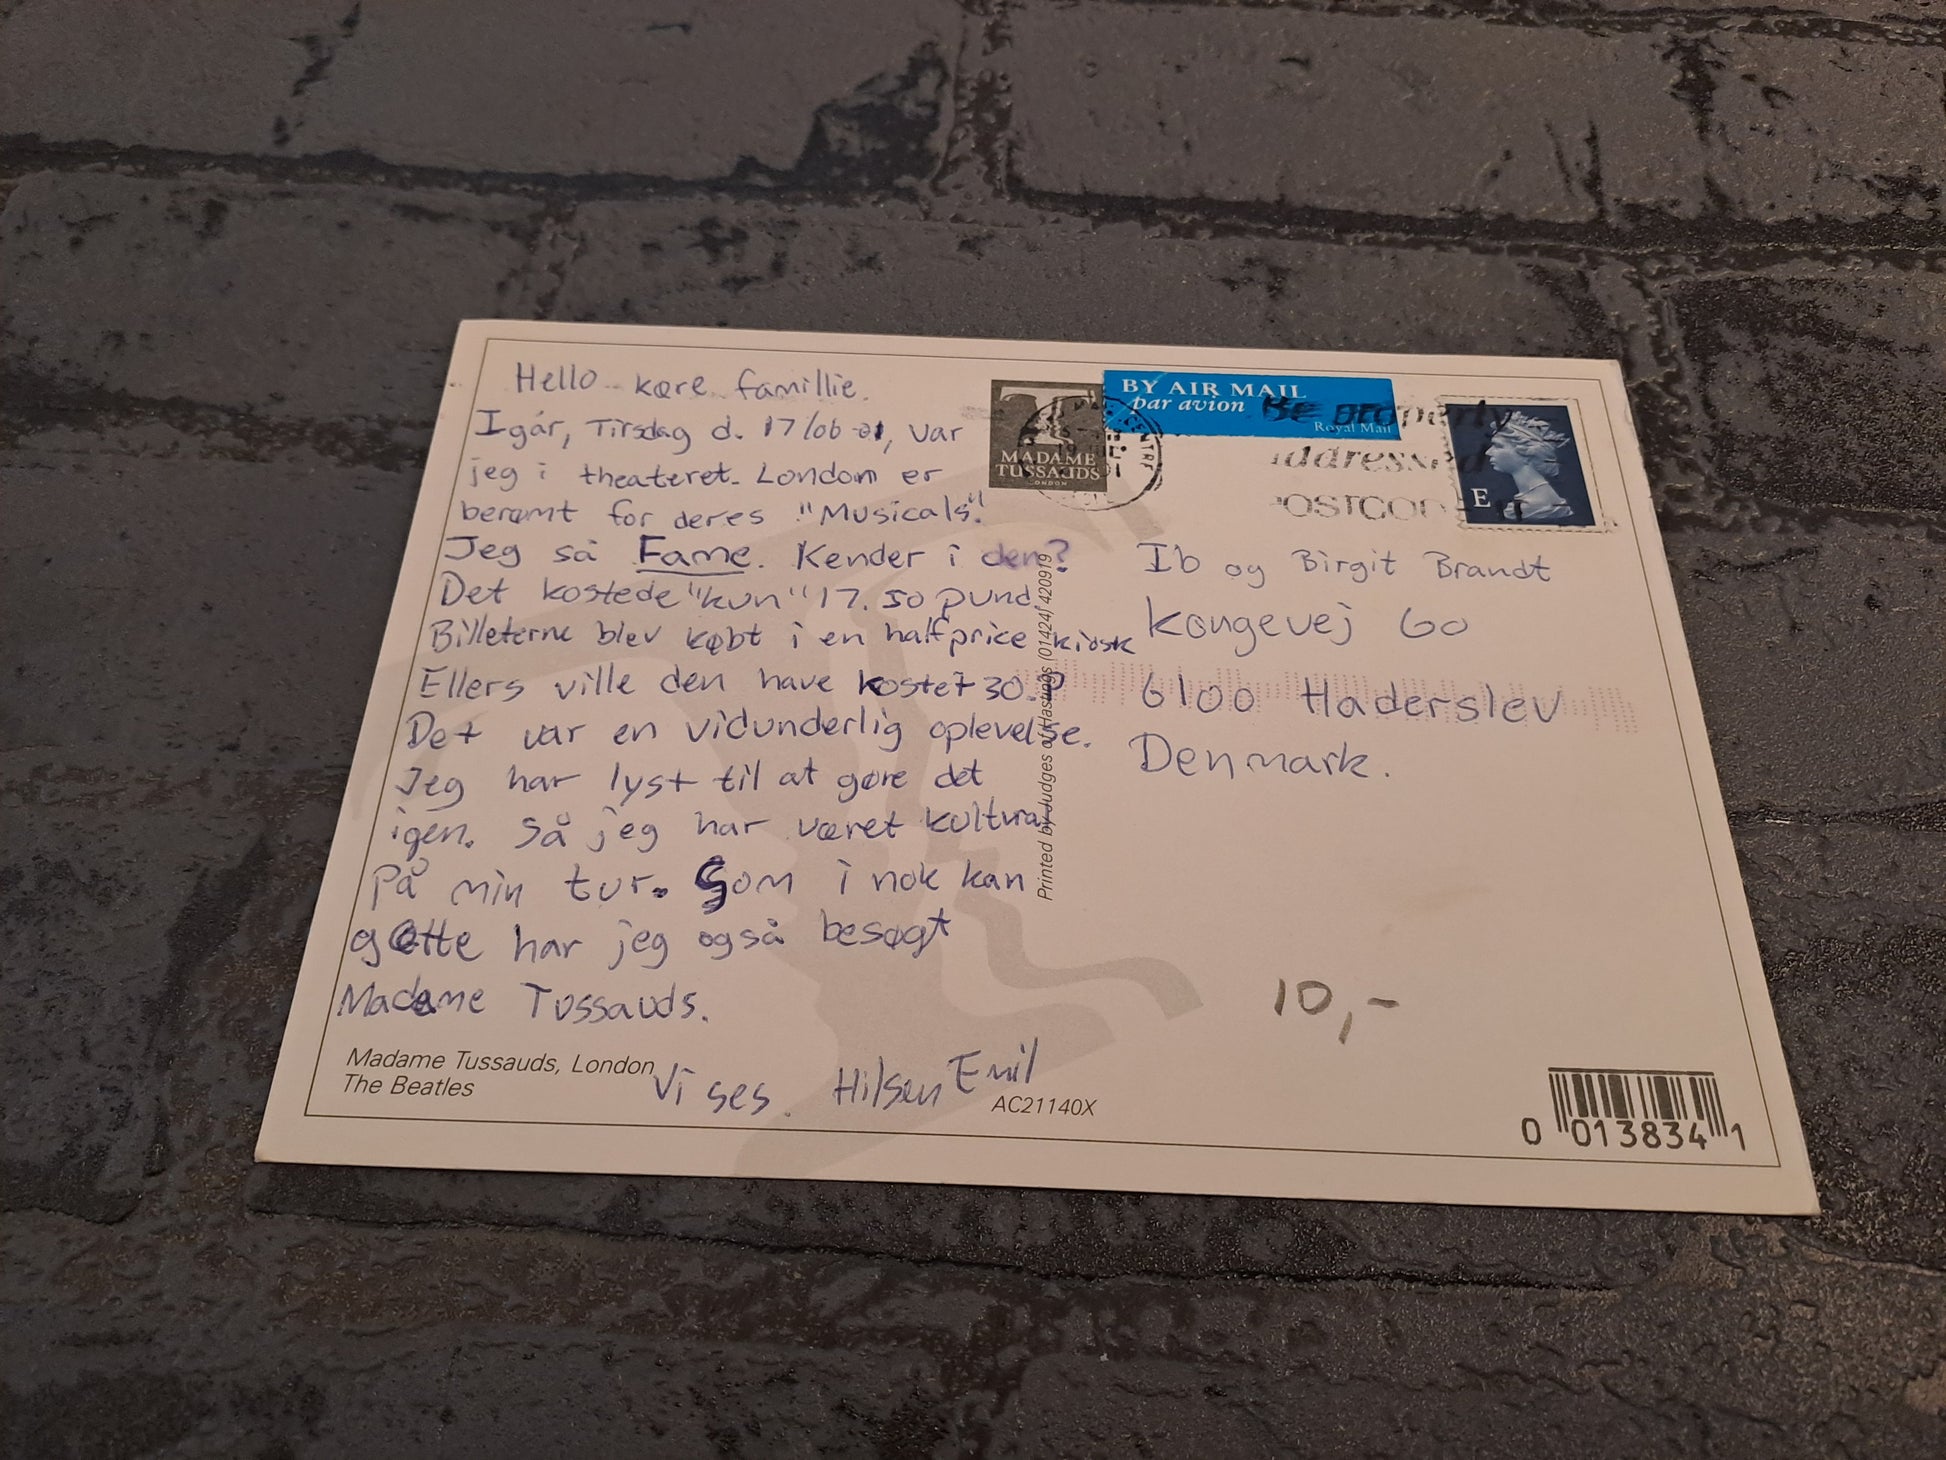 Hello kære famillie.
Igår, Tirsdag d. 17/06-01, var
jeg i theateret. London er
berømt for deres "Musicals".
Jeg så Fame. Kender i den?
Det kostede "kun" 17.50 pund.
Billeterne blev købt i en halfprice kiosk
Ellers ville den have kostet 30.
Det var en vidunderlig oplevelse.
Jeg har lyst til at gøre det
igen. Så jeg har været kultural
På min tur. Som i nok kan
gætte har jeg også besøgt
Madame Tussauds.
Vi ses. Hilsen Emil
Madame Tussauds, London
The Beatles
AC21140X
Printed by Judges of Hastings (01424) 420919
MADAME
TUSSAUDS
LONDON
BY AIR MAIL
par avion
Royal Mail
Be properly
addressed
POSTCODE IT
E
Ib og Birgit Brandt
Kongevej 60
6100 Haderslev
Denmark.
10,-
0 013834 1